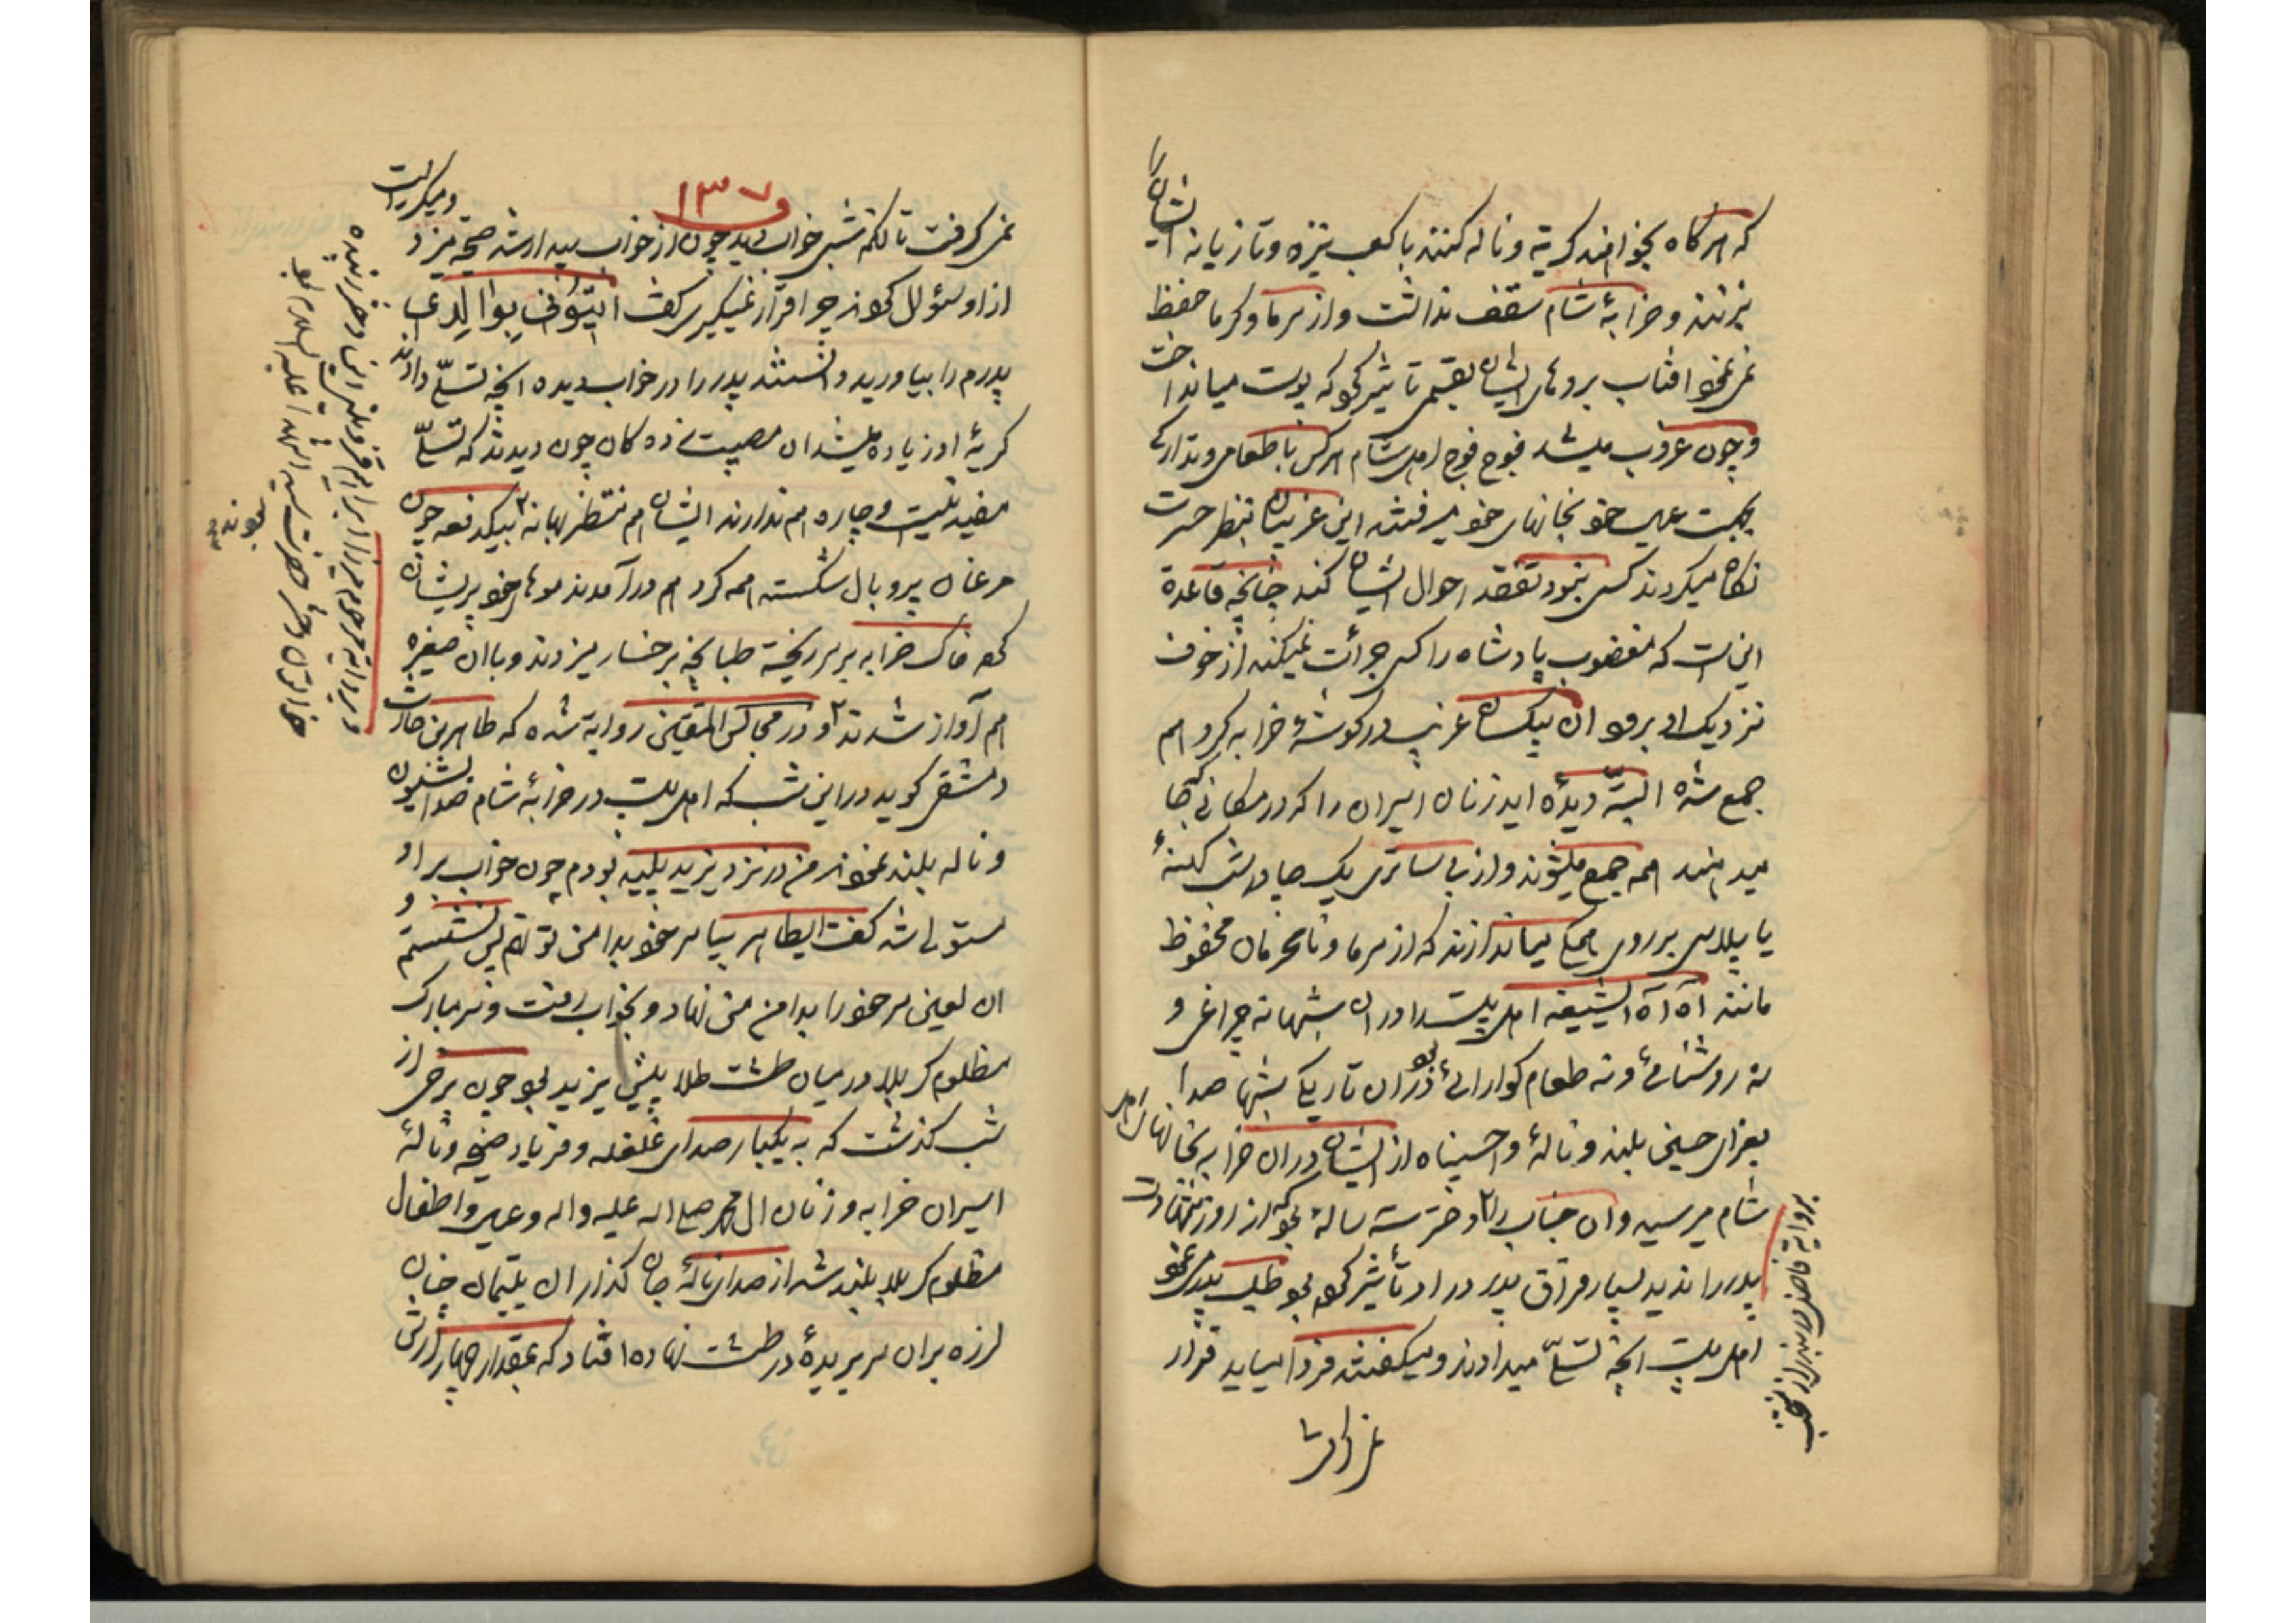 که هرگاه بخواهند گریه و ناله کنند با کعب نیزه و تازیانه ایشان را
بزنند و خرابهٔ شام سقف نداشت و از سرما و گرما حفظ
نمی‌نمود افتاب بروهای ایشان بقسمی تاثیر کرد که پوست میانداخت
و چون غروب میشد فوج فوج اهل شام هرکس با طعامی و تدارکی
بجهت عیال خود بخانهای خود میرفتند این غریبان بنظر حسرت
نگاه میکردند کسی نبود تفقد احوال ایشان کند چنانچه قاعدة
این است که مغضوب پادشاه را کسی جرأت نمیکند از خوف
نزدیک او برود ان بیکسان غریب در گوشهٔ خرابه گرد هم
جمع شده البتّه دیدهٔ اید زنان اسیران را که در مکانی جا
میدهند همه جمع میشوند و از بی ساتری یک چادر شب کهنهٔ
یا پلاسی بر روی همگی میاندازند که از سرما و نامحرمان محفوظ
مانند آه آه الشیعه اهل بیت را در ان شبها نه چراغی و
نه روشنائی و نه طعام گوارائی بود در ان تاریکی شبها صدا
بعزای حسین بلند و نالهٔ واحسیناه از ایشان در ان خرابه بخانهای اهل
شام میرسید و ان جناب را دختر سه سالهٔ بود که از روز شهادت
پدر را ندید بسیار فراق پدر در او تأثیر کرده بود طلب پدر می‌نمود
اهل بیت انچه تسلّی میدادند و میگفتند فردا میاید قرار
بروایة فاضل دربندی از منتخب
نمی‌گرفت
۱۳۷
نمی‌گرفت تا آنکه شبی خواب دید چون از خواب بیدار شد صیحه میزد و میگریست
از او سؤال کردند چرا قرار نمیگیری گفت ایتونی بوالدی
پدرم را بیاورید دانستند پدر را در خواب دیده انچه تسلّی دادند
گریهٔ او زیاده میشد ان مصیبت زده کان چون دیدند که تسلّی
مفید نیست و چاره هم ندارند ایشان هم منتظر بهانه بیکدفعه چون
مرغان پر و بال شکسته همه گرد هم در آمدند موهای خود پریشان
کرده خاک خرابه بر سر ریخته طپانچه بر رخسار میزدند و با ان صغیره
هم آواز شدند و در مجالس المتقین روایة شده که طاهر بن حارث
دمشقی گوید در این شب که اهل بیت در خرابهٔ شام صدا بشیون
و ناله بلند نمودند من در نزد یزید پلید بودم چون خواب بر او
مستولی شد گفت ایطاهر بیا سر خود بدامن تو نهم پس نشستم و
ان لعین سر خود را بدامن من نهاد و بخواب رفت و سر مبارک
مظلوم کربلا در میان طشت طلا پیش یزید بود چون برخی از
شب گذشت که به یکبار صدای غلغله و فریاد ضجه و نالهٔ
اسیران خرابه و زنان ال محمد صلی الله علیه و اله و عیال و اطفال
مظلوم کربلا بلند شد از صدای نالهٔ جان گذار ان یتیمان چنان
لرزه بر ان سر بریدهٔ در طشت نهاده افتاد که بمقدار چهار زرع